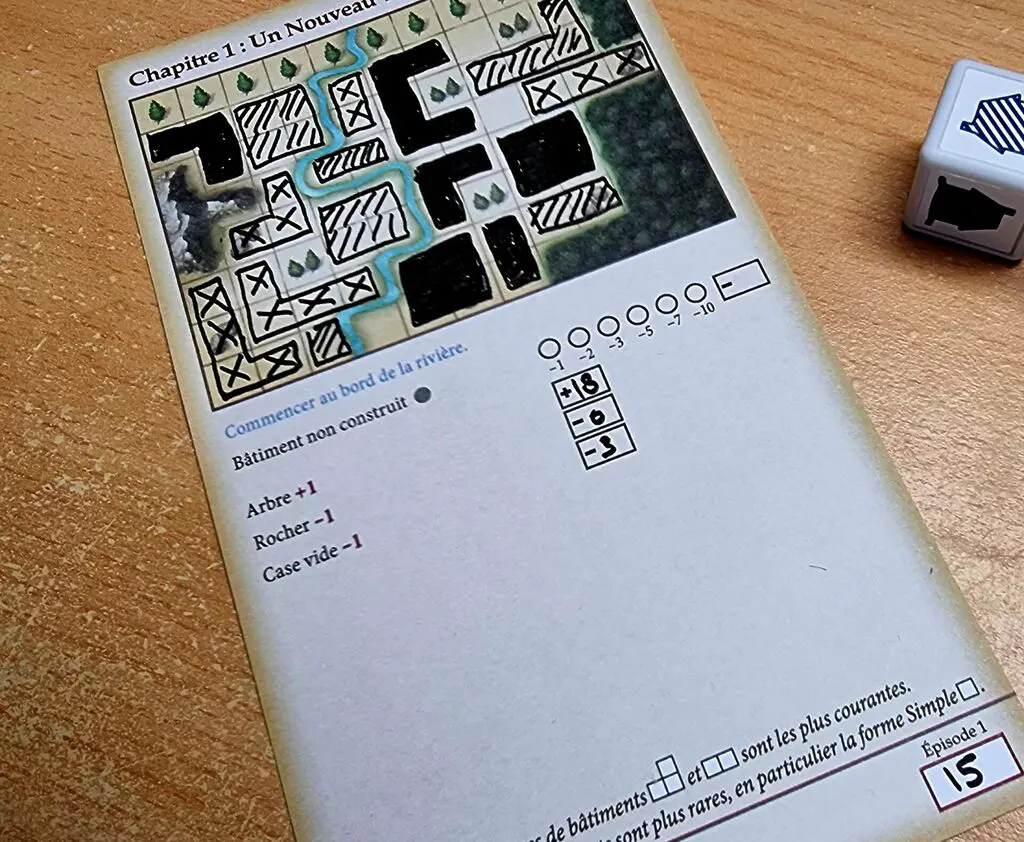 Chapitre 1 : Un Nouveau
Commencer au bord de la rivière.
Bâtiment non construit
-1 -2 -3 -5 -7 -10 -
Arbre +1 +18
Rocher -1 -0
Case vide -1 -3
de bâtiments et sont les plus courantes.
sont plus rares, en particulier la forme Simple .
Épisode 1
15